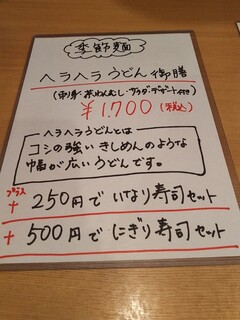 季節麺
ヘラヘラうどん御膳
(お刺身・茶わんむし・サラダ・デザート付)
¥1,700(税込)
ヘラヘラうどんとは
コシの強いきしめんのような
巾が広いうどんです。
プラス
+250円でいなり寿司セット
+500円でにぎり寿司セット